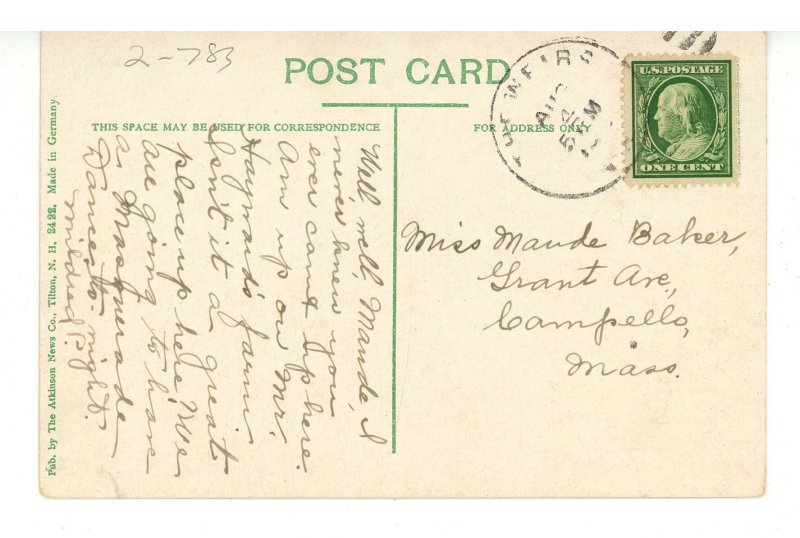 2-783
POST CARD
THIS SPACE MAY BE USED FOR CORRESPONDENCE
FOR ADDRESS ONLY
THE WEIRS
AUG
5 PM
U.S. POSTAGE
ONE CENT
Miss Maude Baker,
Grant Ave,
Campello,
Mass.
Well, well, Maude, I
never knew you
ever came up here.
Am up on Mr.
Hayward's farm.
Isn't it a great
place up here. We
are going to have
a Masquerade
Dance to-night.
Mildred P.
Pub. by The Atkinson News Co., Tilton, N. H. 2422. Made in Germany.